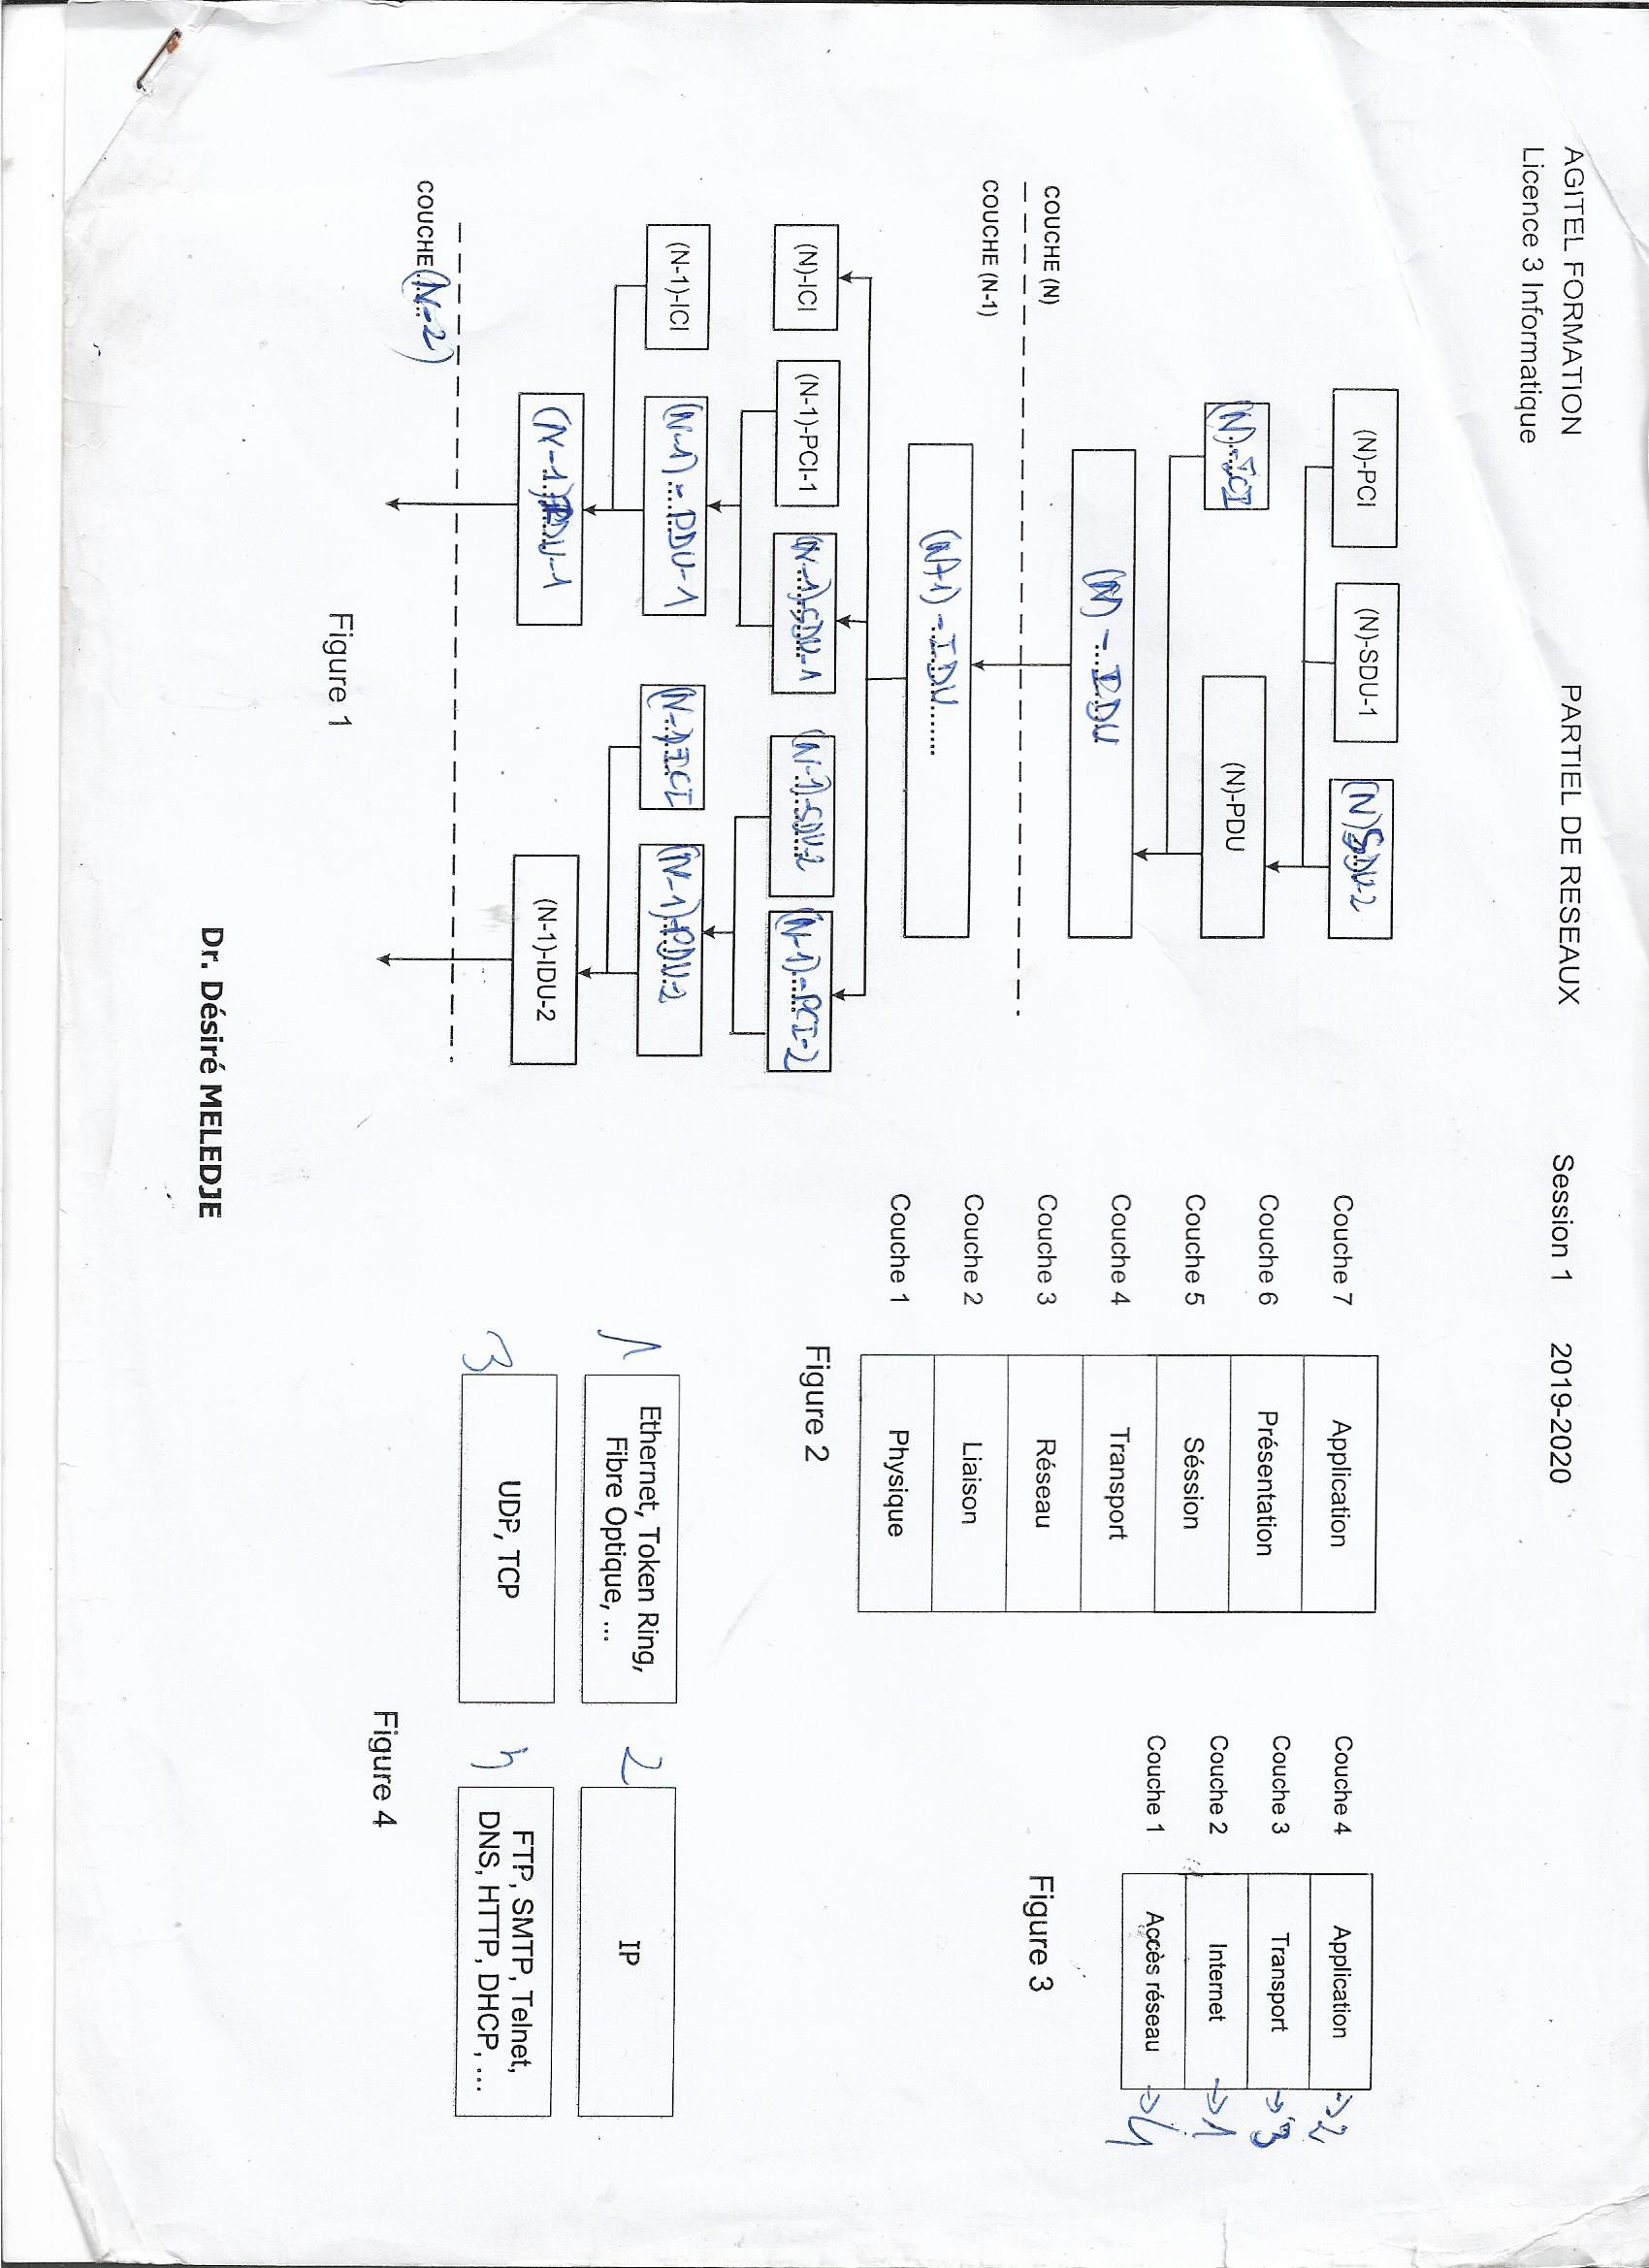 AGITEL FORMATION PARTIEL DE RESEAUX Session 1 2019-2020
Licence 3 Informatique
(N)-PCI
(N)-SDU-1
(N)SDU-2
(N)-ICI
(N)-PDU
(N)-IDU
COUCHE (N)
COUCHE (N-1)
(N+1)-IDU
(N)-ICI
(N-1)-PCI-1
(N-1)-SDU-1
(N-1)-SDU-2
(N-1)-PCI-2
(N-1)-ICI
(N-1)-PDU-1
(N-1)-ICI
(N-1)-PDU-2
(N-1)IDU-1
(N-1)-IDU-2
COUCHE (N-2)
Figure 1
Couche 7 Application
Couche 6 Présentation
Couche 5 Séssion
Couche 4 Transport
Couche 3 Réseau
Couche 2 Liaison
Couche 1 Physique
Figure 2
Couche 4 Application →2
Couche 3 Transport →3
Couche 2 Internet →1
Couche 1 Accès réseau →4
Figure 3
1 Ethernet, Token Ring,
Fibre Optique, ...
2 IP
3 UDP, TCP
FTP, SMTP, Telnet,
DNS, HTTP, DHCP, ...
Figure 4
Dr. Désiré MELEDJE